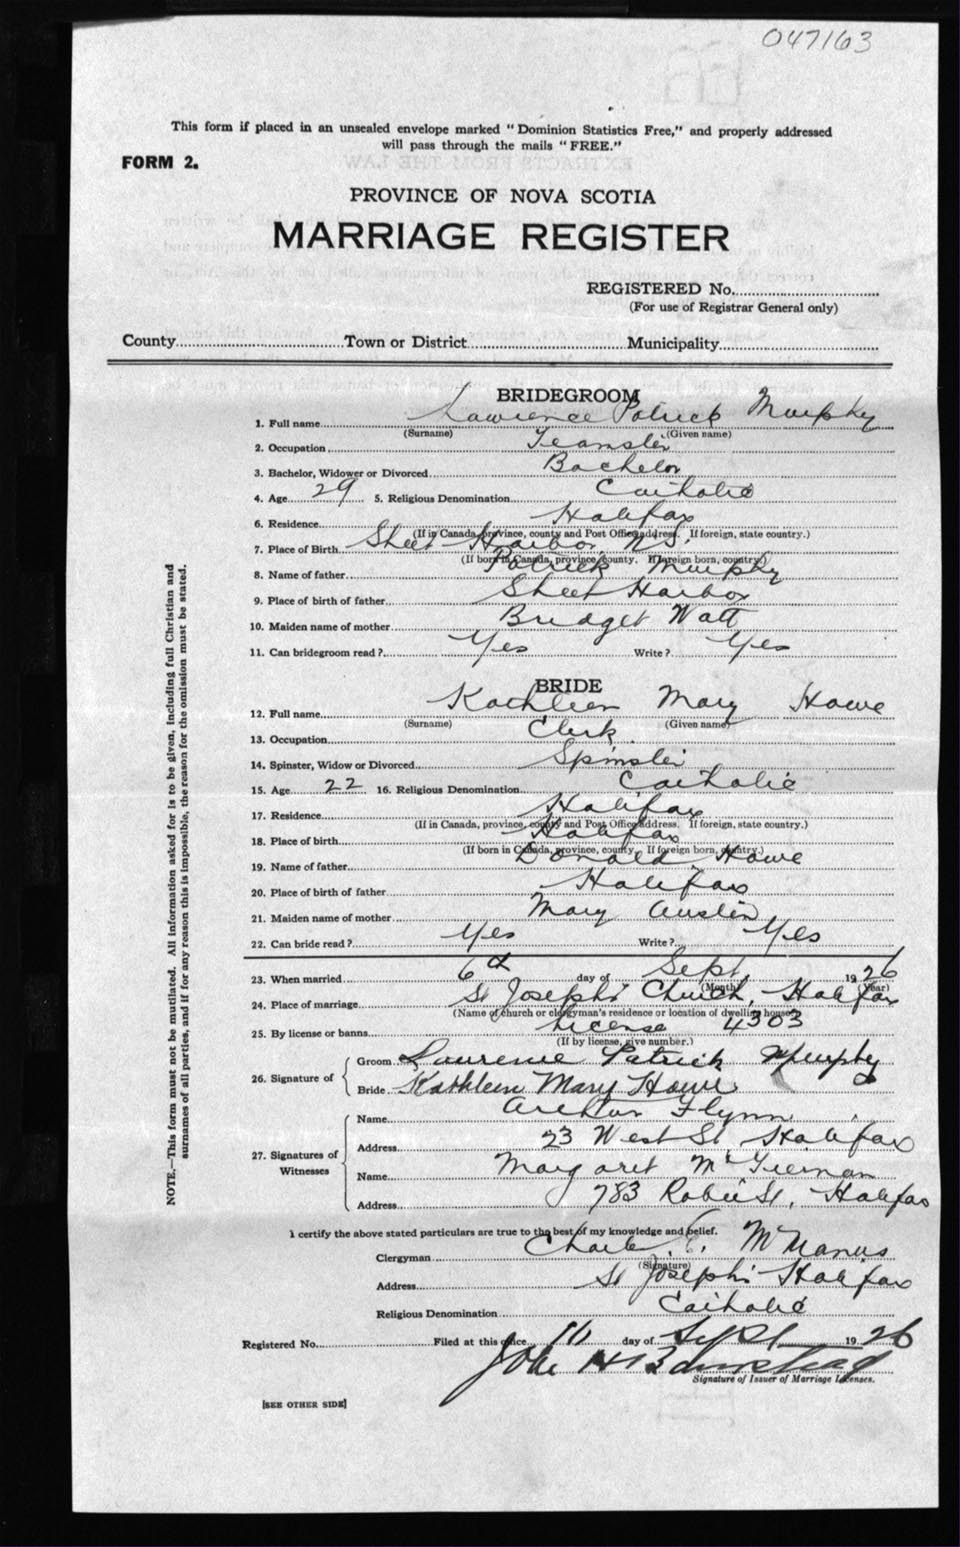 047163
This form if placed in an unsealed envelope marked "Dominion Statistics Free," and properly addressed
will pass through the mails "FREE."
FORM 2.
PROVINCE OF NOVA SCOTIA
MARRIAGE REGISTER
REGISTERED No.
(For use of Registrar General only)
County Town or District Municipality
BRIDEGROOM
1. Full name Lawrence Patrick Murphy
(Surname) (Given name)
2. Occupation Teamster
3. Bachelor, Widower or Divorced Bachelor
4. Age 29 5. Religious Denomination Catholic
6. Residence Halifax
(If in Canada, province, county and Post Office address. If foreign, state country.)
7. Place of Birth Sheet Harbor N.S.
(If born in Canada, province, county. If foreign born, country.)
8. Name of father Patrick Murphy
9. Place of birth of father Sheet Harbor
10. Maiden name of mother Bridget Watt
11. Can bridegroom read? Yes Write? Yes
BRIDE
12. Full name Kathleen Mary Howe
(Surname) (Given name)
13. Occupation Clerk
14. Spinster, Widow or Divorced Spinster
15. Age 22 16. Religious Denomination Catholic
17. Residence Halifax
(If in Canada, province, county and Post Office address. If foreign, state country.)
18. Place of birth Halifax
(If born in Canada, province, county. If foreign born, country.)
19. Name of father Donald Howe
20. Place of birth of father Halifax
21. Maiden name of mother Mary Austin
22. Can bride read? Yes Write? Yes
23. When married 6th day of Sept 1926
(Month) (Year)
24. Place of marriage St Joseph's Church, Halifax
(Name of church or clergyman's residence or location of dwelling house)
25. By license or banns License 4303
(If by license, give number.)
26. Signature of Groom Laurence Patrick Murphy
Bride Kathleen Mary Howe
27. Signatures of Witnesses Name Arthur Flynn
Address 23 West St Halifax
Name Margaret McTiernan
Address 783 Robie St, Halifax
I certify the above stated particulars are true to the best of my knowledge and belief.
Clergyman Charles E. McManus
(Signature)
Address St Joseph's Halifax
Religious Denomination Catholic
Registered No. Filed at this office 16 day of Sept 1926
John H
Signature of Issuer of Marriage Licenses.
[SEE OTHER SIDE]
NOTE.—This form must not be mutilated. All information asked for is to be given, including full Christian and
surnames of all parties, and if for any reason this is impossible, the reason for the omission must be stated.